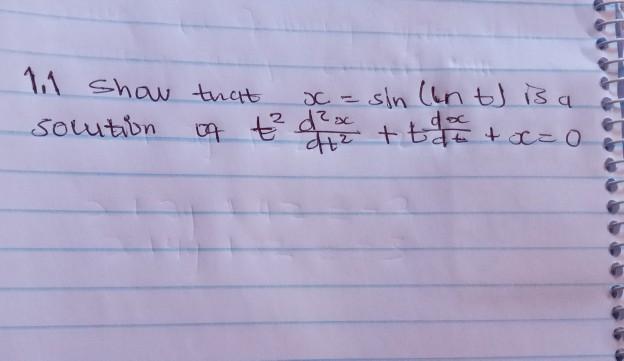 1.1 Show that x = sin (ln t) is a
solution of t² d²x/dt² + t dx/dt + x = 0